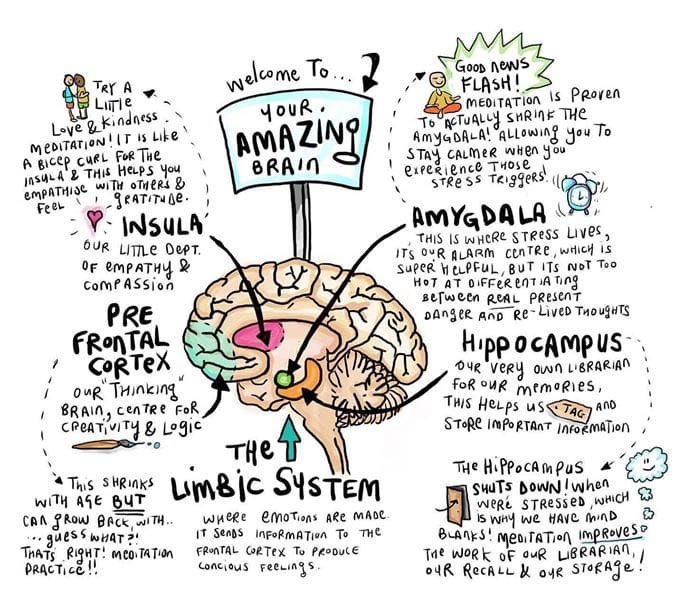 Welcome To...
YOUR
AMAZING
BRAIN
TRY A
LITTLE
Love & Kindness
MEDITATION! IT IS LIKE
A BICEP CURL FOR THE
INSULA & THIS HELPS YOU
EMPATHISE WITH OTHERS &
FEEL GRATITUDE.
INSULA
OUR LITTLE DEPT.
OF EMPATHY &
COMPASSION
PRE
FRONTAL
CORTEX
OUR "THINKING"
BRAIN, CENTRE FOR
CREATIVITY & LOGIC
THIS SHRINKS
WITH AGE BUT
CAN GROW BACK, WITH..
...GUESS WHAT?!
THATS RIGHT! MEDITATION
PRACTICE!!
THE
LIMBIC SYSTEM
WHERE EMOTIONS ARE MADE.
IT SENDS INFORMATION TO THE
FRONTAL CORTEX TO PRODUCE
CONCIOUS FEELINGS.
GOOD NEWS
FLASH!
MEDITATION IS PROVEN
TO ACTUALLY SHRINK THE
AMYGDALA! ALLOWING YOU TO
STAY CALMER WHEN YOU
EXPERIENCE THOSE
STRESS TRIGGERS!
AMYGDALA
THIS IS WHERE STRESS LIVES,
ITS OUR ALARM CENTRE, WHICH IS
SUPER HELPFUL, BUT ITS NOT TOO
HOT AT DIFFERENTIATING
BETWEEN REAL PRESENT
DANGER AND RE-LIVED THOUGHTS
HIPPOCAMPUS
OUR VERY OWN LIBRARIAN
FOR OUR MEMORIES,
THIS HELPS US TAG AND
STORE IMPORTANT INFORMATION
THE HIPPOCAMPUS
SHUTS DOWN! WHEN
WERE STRESSED, WHICH
IS WHY WE HAVE MIND
BLANKS! MEDITATION IMPROVES
THE WORK OF OUR LIBRARIAN,
OUR RECALL & OUR STORAGE!